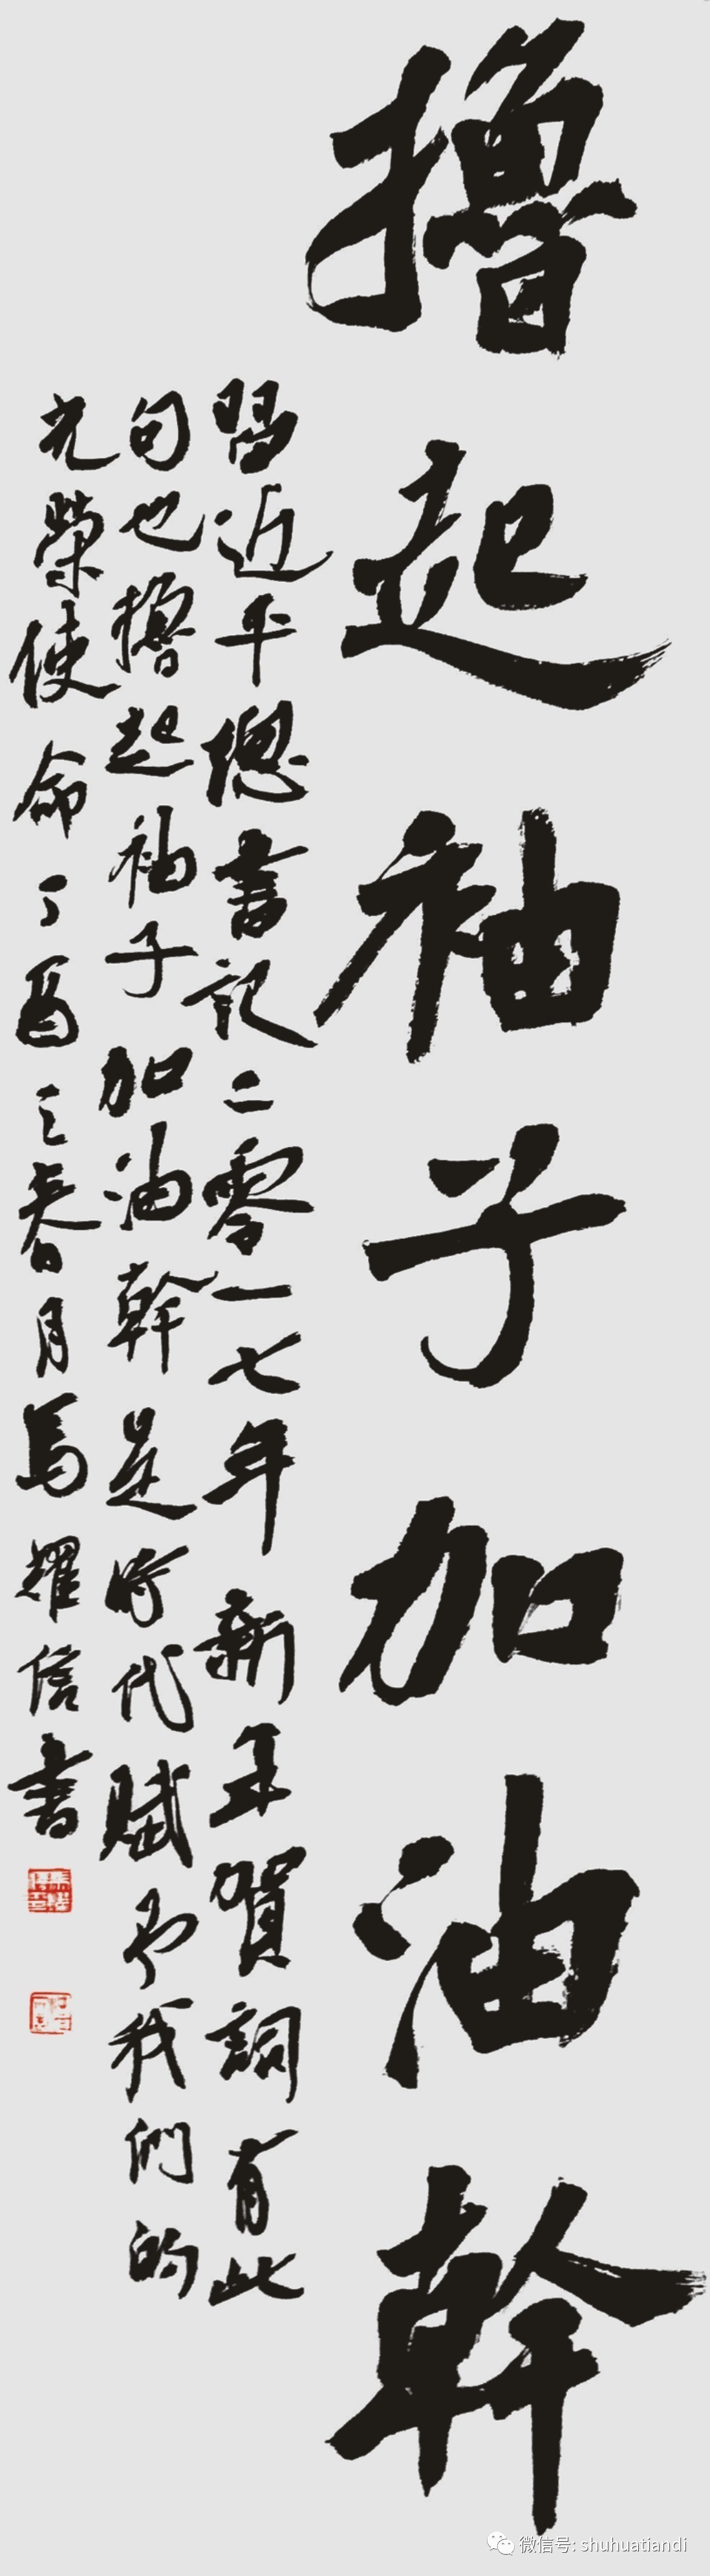 擼起袖子加油幹
習近平總書記二零一七年新年賀詞有此
句也擼起袖子加油幹是時代賦予我們的
光榮使命丁酉之春月馬耀信書
微信号: shuhuatiandi